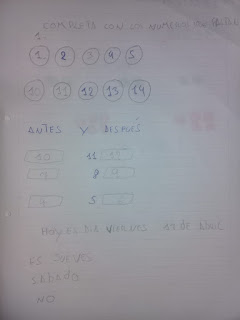 COMPLETA CON LOS NUMEROS
1.
1 2 3 4 5
10 11 12 13 14
ANTES Y DESPUÉS
10 11 12
7 8 9
4 5 6
HOY ES DIA VIERNES 17 DE ABRIL
ES JUEVES
SABADO
NO